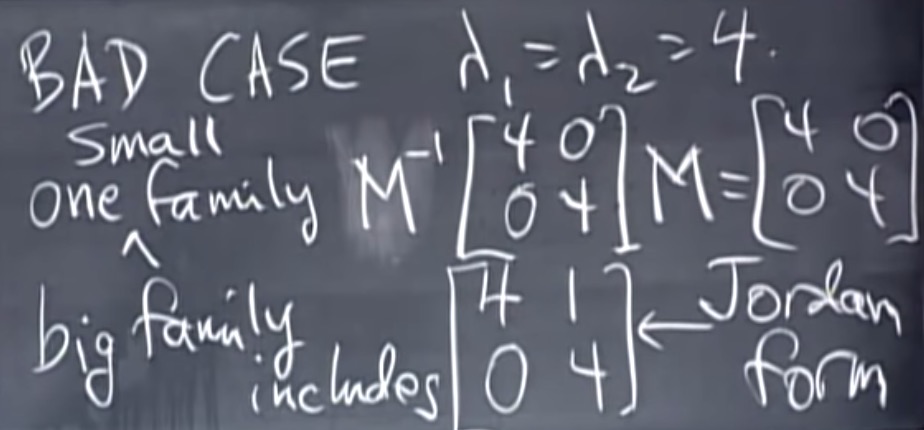 BAD CASE λ₁ = λ₂ = 4.
small
one family M⁻¹ [4 0; 0 4] M = [4 0; 0 4]
^
big family includes [4 1; 0 4] ← Jordan form